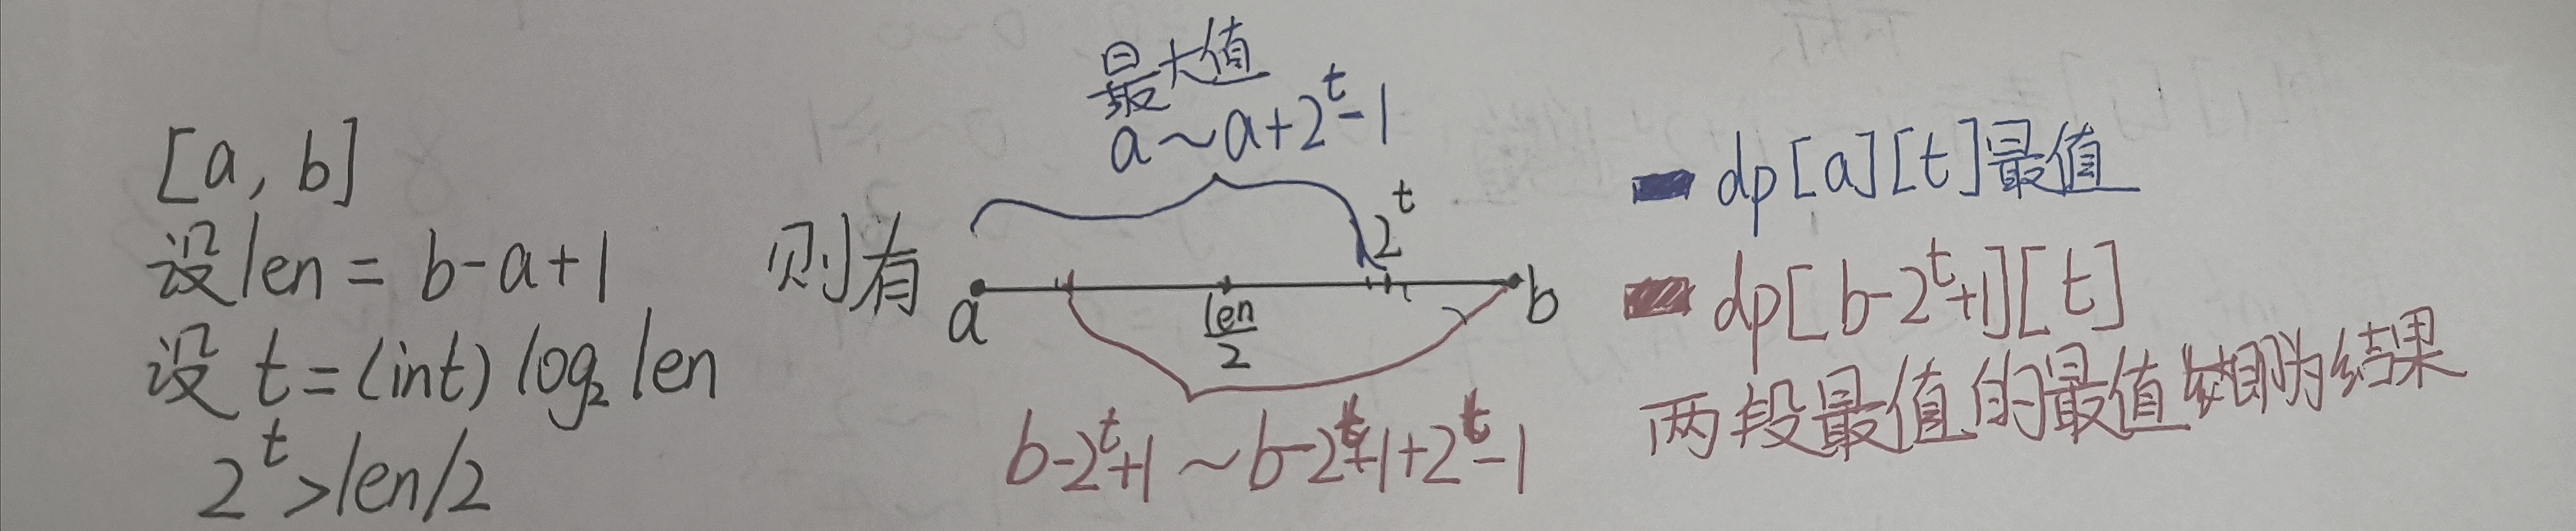 [a, b]
设len = b-a+1
设 t=(int) log₂ len
2^t>len/2
则有
最大值
a～a+2^t-1
2^t
a
len/2
b
b-2^t+1～b-2^t+1+2^t-1
dp[a][t]最值
dp[b-2^t+1][t]
两段最值的最值即为结果